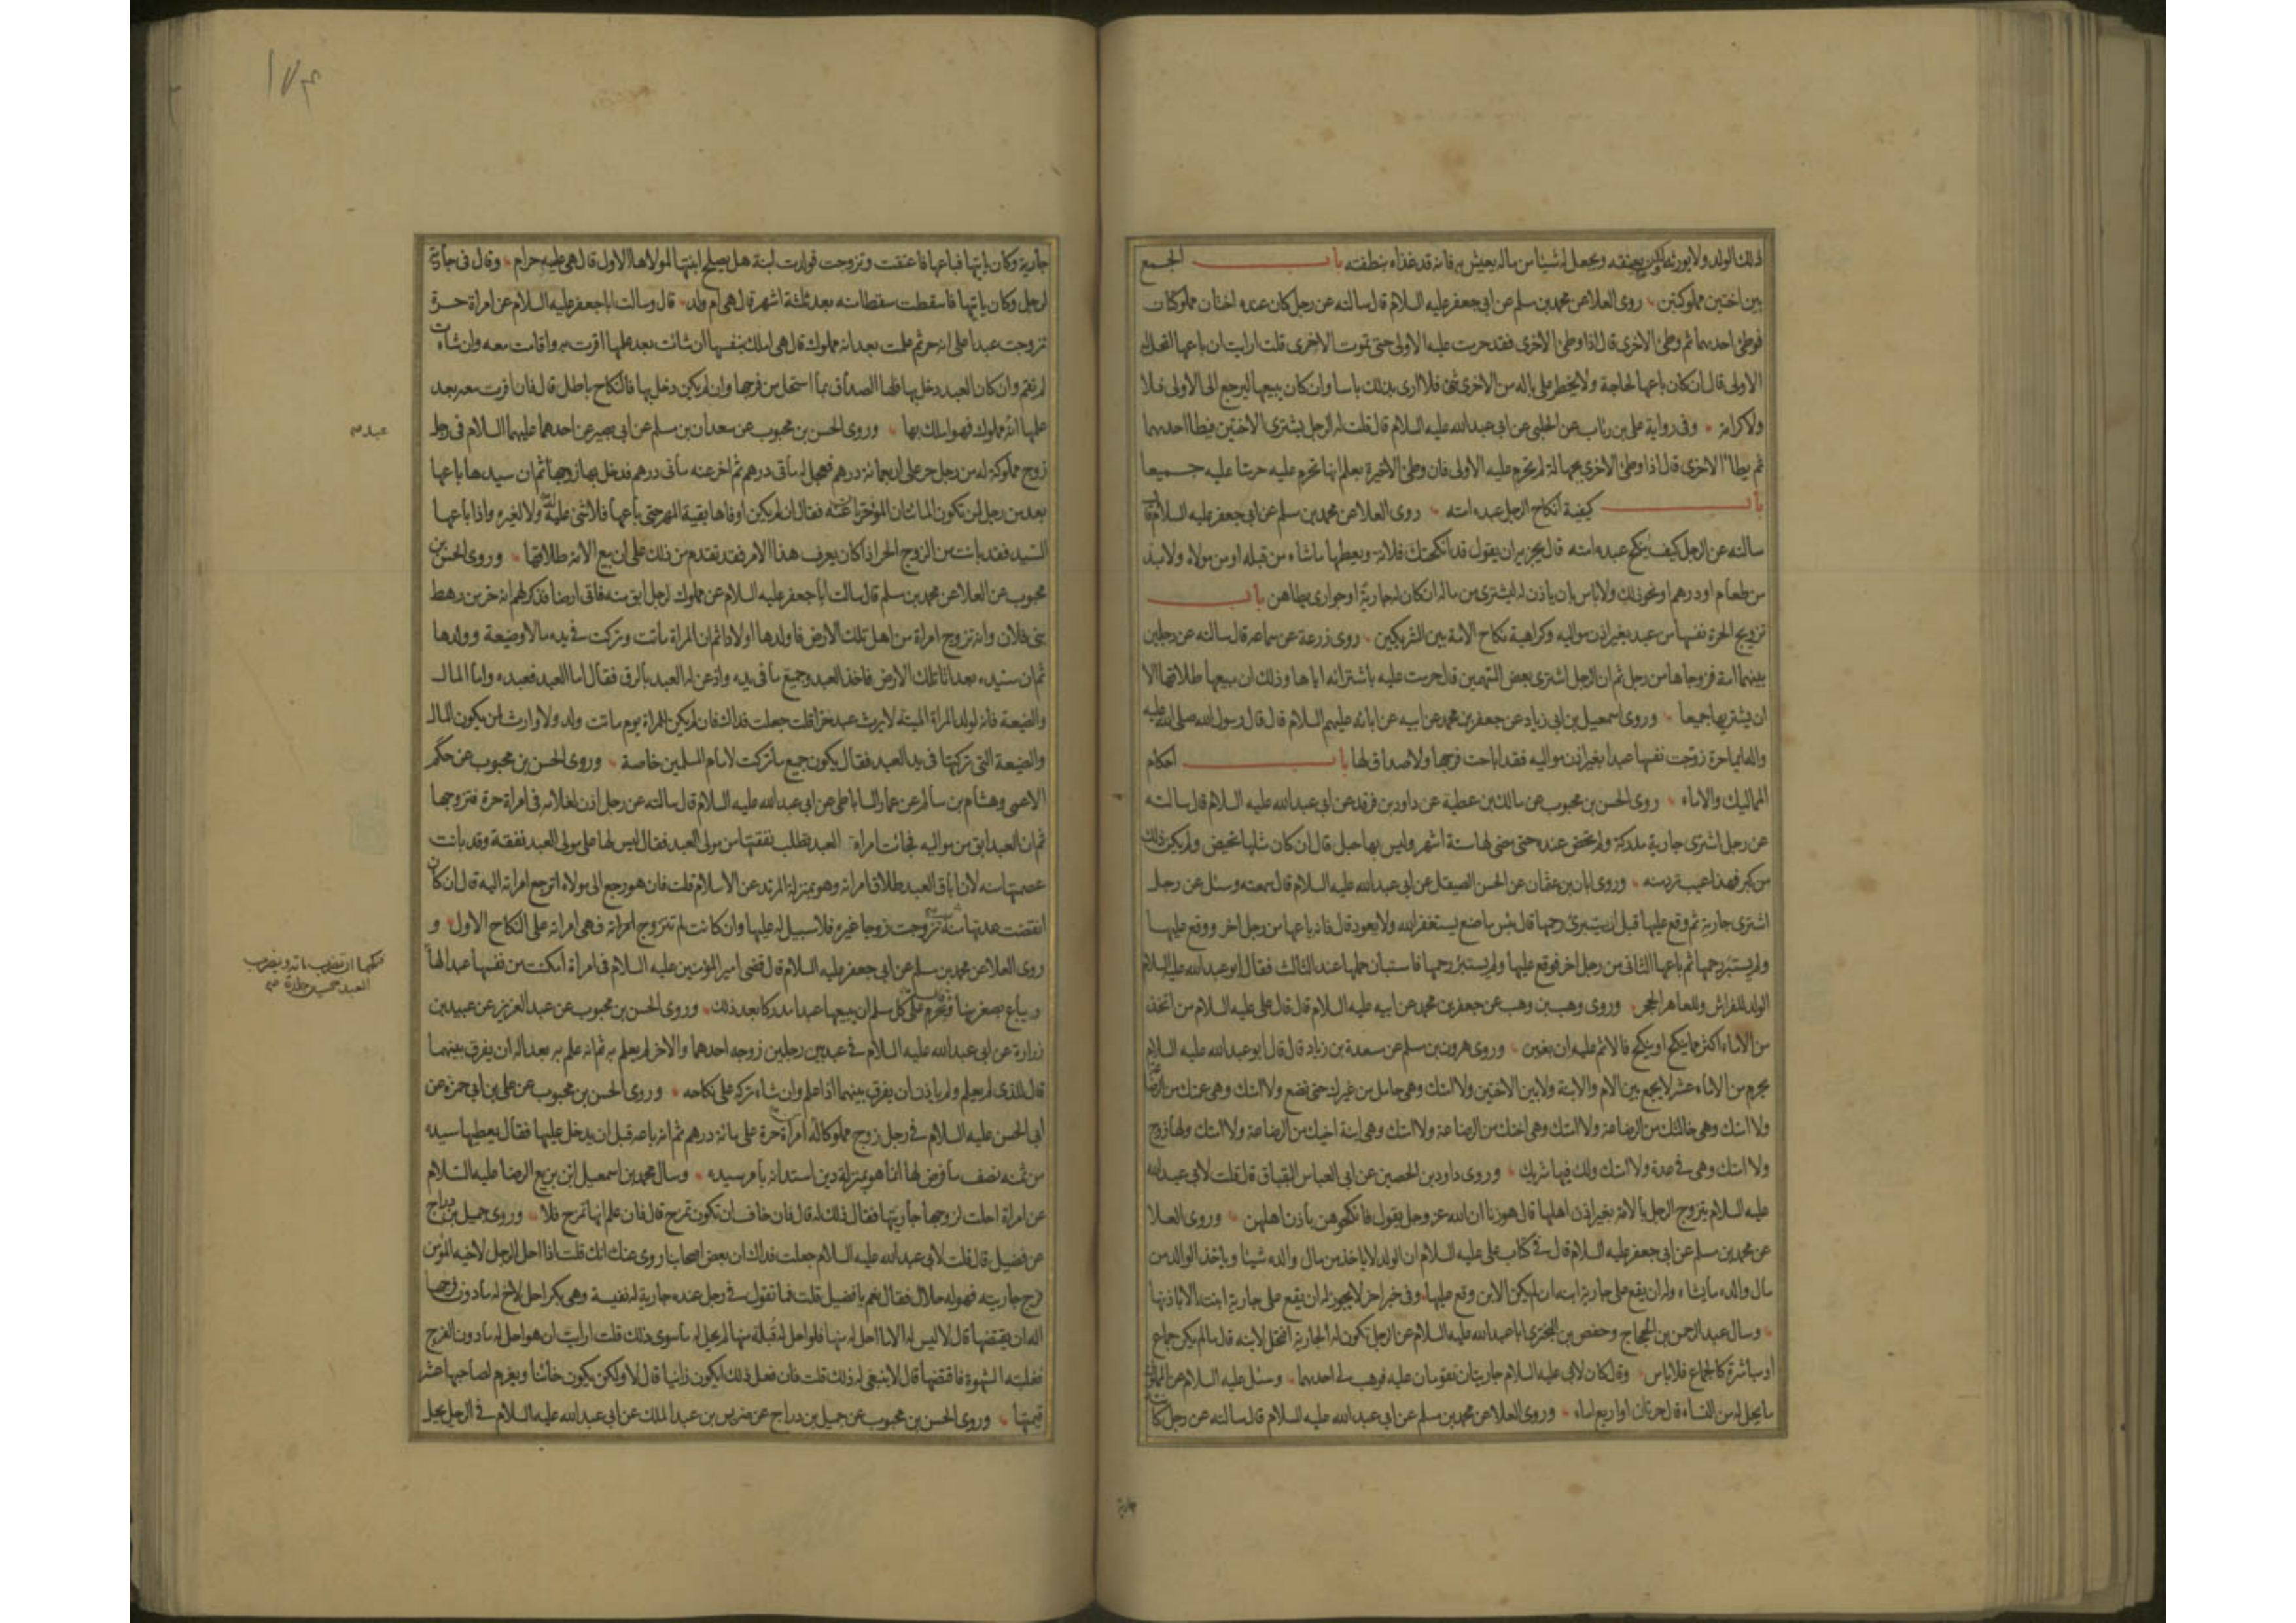 لذلك الولد ولا يورثه ولكن يعتقه ويجعل له شيئا من ماله يعيش به فانه قد غذاه بنطفته باب الجمع
بين اختين مملوكتين روى العلا عن محمد بن مسلم عن ابى جعفر عليه السلام قال سالته عن رجل كان عنده اختان مملوكتان
فوطئ احدهما ثم وطئ الاخرى قال اذا وطئ الاخرى فقد حرمت عليه الاولى حتى تموت الاخرى قلت ارايت ان باعها اتحل له
الاولى قال ان كان باعها لحاجة ولا يخطر على باله من الاخرى شئ فلا ارى بذلك باسا وان كان يبيعها ليرجع الى الاولى فلا
ولا كرامة وفى رواية على بن رئاب عن الحلبى عن ابى عبدالله عليه السلام قال قلت له الرجل يشترى الاختين فيطا احدهما
ثم يطا الاخرى قال اذا وطئ الاخرى بجهالة لم تحرم عليه الاولى فان وطئ الاخيرة يعلم انها تحرم عليه حرمتا عليه جميعا
باب كيفية انكاح الرجل عبده امته روى العلا عن محمد بن مسلم عن ابى جعفر عليه السلام قال
سالته عن الرجل كيف ينكح عبده امته قال يجزيه ان يقول قد انكحتك فلانة ويعطيها ما شاء من قبله او من مولاه ولا بد
من طعام او درهم او نحو ذلك ولا باس بان ياذن له ليشترى من ماله ان كان له جارية او جوارى يطاهن باب
تزويج الحرة نفسها من عبد بغير اذن مواليه وكراهية نكاح الامة بين الشريكين روى زرعة عن سماعه قال سالته عن رجلين
بينهما امة فزوجاها من رجل ثم ان الرجل اشترى بعض السهمين قال حرمت عليه باشترائه اياها وذلك ان بيعها طلاقها الا
ان يشتريها جميعا وروى اسمعيل بن ابى زياد عن جعفر بن محمد عن ابيه عن ابائه عليهم السلام قال قال رسول الله صلى الله عليه
واله ايما حرة زوجت نفسها عبدا بغير اذن مواليه فقد اباحت فرجها ولا صداق لها باب احكام
المماليك والاماء روى الحسن بن محبوب عن مالك بن عطية عن داود بن فرقد عن ابى عبدالله عليه السلام قال سالته
عن رجل اشترى جارية مدركة ولم تحض عنده حتى مضى لها ستة اشهر وليس بها حبل قال ان كان مثلها تحيض ولم يكن ذلك
من كبر فهذا عيب ترد منه وروى ابان بن عثمان عن الحسن الصيقل عن ابى عبدالله عليه السلام قال سمعته وسئل عن رجل
اشترى جارية ثم وقع عليها قبل ان يستبرئ رحمها قال بئس ما صنع يستغفر الله ولا يعود قال فانه باعها من رجل اخر ووقع عليها
ولم يستبرئ رحمها ثم باعها الثانى من رجل اخر فوقع عليها ولم يستبرئ رحمها فاستبان حملها عند الثالث فقال ابوعبدالله عليه السلام
الولد للفراش وللعاهر الحجر وروى وهب بن وهب عن جعفر بن محمد عن ابيه عليه السلام قال قال على عليه السلام من اتخذ
من الاماء اكثر مما ينكح او ينكح فالاثم عليه ان بغين وروى هرون بن مسلم عن مسعدة بن زياد قال قال ابوعبدالله عليه السلام
يحرم من الاماء عشر لا يجمع بين الام والابنة ولا بين الاختين ولا امتك وهى حامل من غيرك حتى تضع ولا امتك وهى عمتك من الرضاعة
ولا امتك وهى خالتك من الرضاعة ولا امتك وهى اختك من الرضاعة ولا امتك وهى ابنة اخيك من الرضاعة ولا امتك ولها زوج
ولا امتك وهى فى عدة ولا امتك ولك فيها شريك وروى داود بن الحصين عن ابى العباس البقباق قال قلت لابى عبدالله
عليه السلام يتزوج الرجل بالامة بغير اذن اهلها قال هو زنا ان الله عز وجل يقول فانكحوهن باذن اهلهن وروى العلا
عن محمد بن مسلم عن ابى جعفر عليه السلام قال فى كتاب على عليه السلام ان الولد لا ياخذ من مال والده شيئا وياخذ الوالد من
مال والده ما يشاء وله ان يقع على جارية ابنه ان لم يكن الابن وقع عليها وفى خبر اخر لا يجوز له ان يقع على جارية ابنته الا باذنها
وسال عبدالرحمن بن الحجاج وحفص بن البخترى اباعبدالله عليه السلام عن الرجل تكون له الجارية افتحل لابنه قال ما لم يكن جماع
او مباشرة كالجماع فلا باس وقال كان لابى عليه السلام جاريتان تقومان عليه فوهب لى احدهما وسئل عليه السلام عن المملوك
ما يحل له من النساء قال حرتان او اربع اماء وروى العلا عن محمد بن مسلم عن ابى عبدالله عليه السلام قال سالته عن رجل كانت له
جارية
١٧٤
جارية وكان ياتيها فباعها فاعتقت وتزوجت فولدت ابنة هل يصلح ابنتها لمولاها الاول قال هى عليه حرام وقال فى جارية
لرجل وكان ياتيها فاسقطت سقطا منه بعد ثلثة اشهر قال هى ام ولد قال وسالت اباجعفر عليه السلام عن امراة حرة
تزوجت عبدا على انه حر ثم علمت بعد انه مملوك قال هى املك بنفسها ان شائت بعد علمها اقرت به واقامت معه وان شائت
لم تقم وان كان العبد دخل بها فلها الصداق بما استحل من فرجها وان لم يكن دخل بها فالنكاح باطل قال فان اقرت معه بعد
علمها انه مملوك فهو املك بها وروى الحسن بن محبوب عن سعدان بن مسلم عن ابى بصير عن احدهما عليهما السلام فى رجل
زوج مملوكة له من رجل حر على اربعمائة درهم فعجل له مأتى درهم ثم اخر عنه مأتى درهم فدخل بها زوجها ثم ان سيدها باعها
بعد من رجل لمن تكون المائتان المؤخرتان عنه فقال ان لم يكن اوفاها بقية المهر حتى باعها فلا شئ عليه له ولا لغيره واذا باعها
السيد فقد بانت من الزوج الحر اذا كان يعرف هذا الامر فقد تقدم من ذلك على ان بيع الامة طلاقها وروى الحسن بن
محبوب عن العلا عن محمد بن مسلم قال سالت اباجعفر عليه السلام عن مملوك لرجل ابق منه فاتى ارضا فذكر لهم انه حر من رهط
بنى فلان وانه تزوج امراة من اهل تلك الارض فاولدها اولادا ثم ان المراة ماتت وتركت فى يده مالا وضيعة وولدها
ثم ان سيده بعد اتا تلك الارض فاخذ العبد وجميع ما فى يده واذعن له العبد بالرق فقال اما العبد فعبده واما المال
والضيعة فانه لولد المراة الميتة لا يرث عبد حرا قلت جعلت فداك فان لم يكن للمراة يوم ماتت ولد ولا وارث لمن يكون المال
والضيعة التى تركتها فى يد العبد فقال يكون جميع ما تركت لامام المسلمين خاصة وروى الحسن بن محبوب عن حكم
الاعمى وهشام بن سالم عن عمار الساباطى عن ابى عبدالله عليه السلام قال سالته عن رجل اذن لغلامه فى امراة حرة فتزوجها
ثم ان العبد ابق من مواليه فجائت امراة العبد تطلب نفقتها من مولى العبد فقال ليس لها على مولى العبد نفقة وقد بانت
عصمتها منه لان اباق العبد طلاق امراته وهو بمنزلة المرتد عن الاسلام قلت فان هو رجع الى مولاه اترجع امراته اليه قال ان كان
انقضت عدتها منه ثم تزوجت زوجا غيره فلا سبيل له عليها وان كانت لم تتزوج امراته فهى امراته على النكاح الاول و
روى العلا عن محمد بن مسلم عن ابى جعفر عليه السلام قال قضى امير المؤمنين عليه السلام فى امراة امكنت من نفسها عبدا لها
ويباع بصغر منها ويحرم على كل مسلم ان يبيعها عبدا مدركا بعد ذلك وروى الحسن بن محبوب عن عبدالعزيز عن عبيد بن
زرارة عن ابى عبدالله عليه السلام فى عبد بين رجلين زوجه احدهما والاخر لم يعلم به ثم انه علم به بعد اله ان يفرق بينهما
قال للذى لم يعلم ولم ياذن ان يفرق بينهما اذا علم وان شاء تركه على نكاحه وروى الحسن بن محبوب عن على بن ابى حمزة عن
ابى الحسن عليه السلام فى رجل زوج مملوكا له امراة حرة على مائة درهم ثم انه باعه قبل ان يدخل عليها فقال يعطيها سيده
من ثمنه نصف ما فرض لها انما هو بمنزلة دين استدانه بامر سيده وسال محمد بن اسمعيل ابن بزيع الرضا عليه السلام
عن امراة احلت لزوجها جاريتها فقال ذلك له قال فان خاف ان تكون تمزح قال فان علم انها تمزح فلا وروى جميل بن دراج
عن فضيل قال قلت لابى عبدالله عليه السلام جعلت فداك ان بعض اصحابنا روى عنك انك قلت اذا احل الرجل لاخيه المؤمن
فرج جاريته فهو له حلال فقال نعم يا فضيل قلت فما تقول فى رجل عنده جارية له نفيسة وهى بكر احل لاخ له ما دون فرجها
اله ان يقتضها قال لا ليس له الا ما احل له منها فلو احل له قبلة منها لم يحل له ما سوى ذلك قلت ارايت ان هو احل له ما دون الفرج
فغلبته الشهوة فاقتضها قال لا ينبغى له ذلك قلت فان فعل ذلك ايكون زانيا قال لا ولكن يكون خائنا ويغرم لصاحبها عشر
قيمتها وروى الحسن بن محبوب عن جميل بن دراج عن ضريس بن عبد الملك عن ابى عبدالله عليه السلام فى الرجل يحل
فنكحها ان تضرب مائة ويضرب
العبد خمسين جلدة صح